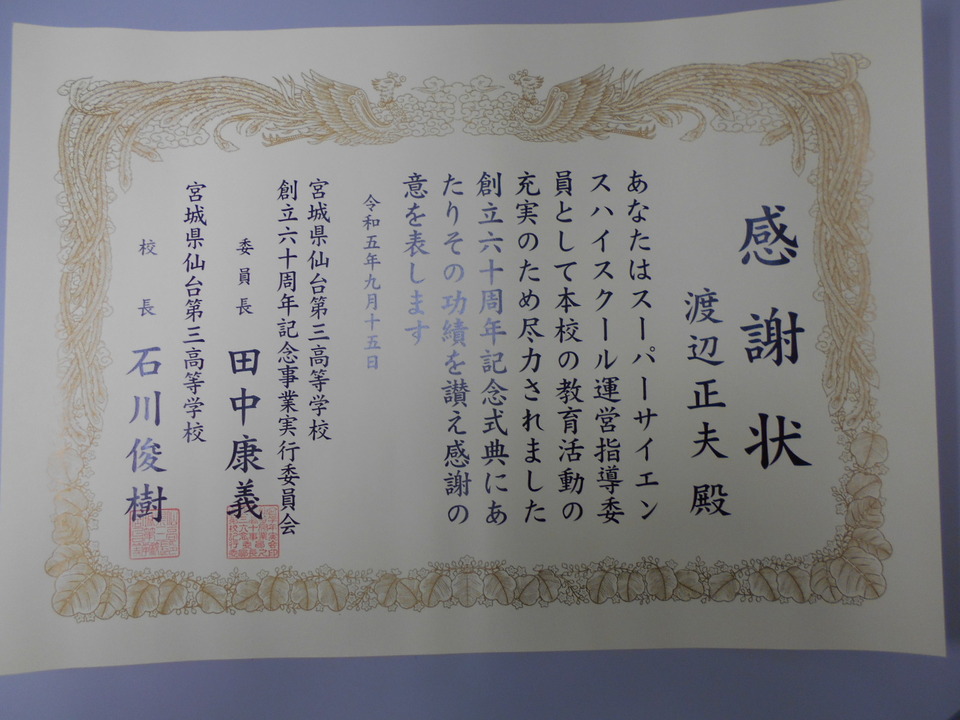 感謝状
渡辺正夫殿
あなたはスーパーサイエン
スハイスクール運営指導委
員として本校の教育活動の
充実のため尽力されました
創立六十周年記念式典にあ
たりその功績を讃え感謝の
意を表します
令和五年九月十五日
宮城県仙台第三高等学校
創立六十周年記念事業実行委員会
委員長 田中康義
宮城県仙台第三高等学校
校長 石川俊樹